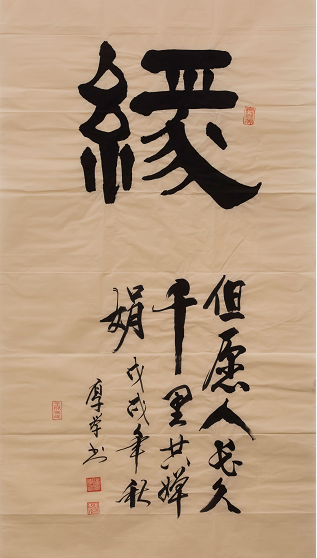 緣
但愿人长久
千里共婵
娟 戊戌年秋
厚学书